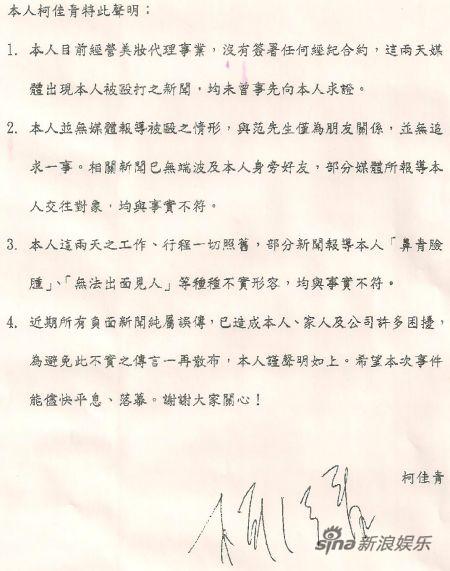 本人柯佳青特此聲明：
1. 本人目前經營美妝代理事業，沒有簽署任何經紀合約，這兩天媒
體出現本人被毆打之新聞，均未曾事先向本人求證。
2. 本人並無媒體報導被毆之情形，與范先生僅為朋友關係，並無追
求一事。相關新聞已無端波及本人身旁好友，部分媒體所報導本
人交往對象，均與事實不符。
3. 本人這兩天之工作、行程一切照舊，部分新聞報導本人「鼻青臉
腫」、「無法出面見人」等種種不實形容，均與事實不符。
4. 近期所有負面新聞純屬誤傳，已造成本人、家人及公司許多困擾，
為避免此不實之傳言一再散布，本人謹聲明如上。希望本次事件
能儘快平息、落幕。謝謝大家關心！
柯佳青
柯佳青
sina新浪娱乐